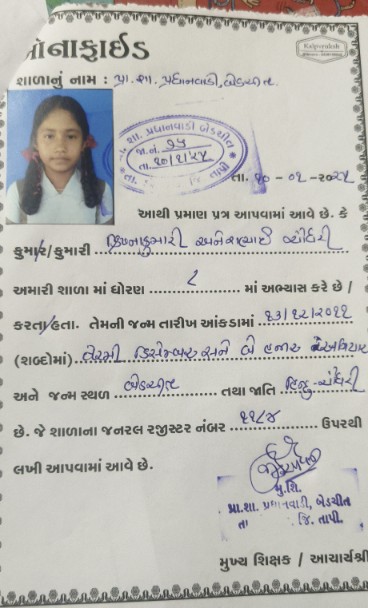 બોનાફાઈડ
Kalpvruksh
શાળાનું નામ : પ્રા. શા. પ્રધાનવાડી, બેડચીત
પ્રા. શા. પ્રધાનવાડી બેડચીત
જા.નં. ૭૫
તા. ૧૦/૧/૨૪
તા. ૧૦ - ૦૧ -૨૦૨૪
આથી પ્રમાણ પત્ર આપવામાં આવે છે. કે
કુમાર/કુમારી ચૌધરી
અમારી શાળા માં ધોરણ ૮ માં અભ્યાસ કરે છે /
કરતા/હતા. તેમની જન્મ તારીખ આંકડામાં ૧૩/૧૨/૨૦૧૧
(શબ્દોમાં) તેરમી ડિસેમ્બર અને બે હજાર અગિયાર
અને જન્મ સ્થળ બેડચીત તથા જાતિ હિન્દુ-ચૌધરી
છે. જે શાળાના જનરલ રજીસ્ટર નંબર ૧૧૮૪ ઉપરથી
લખી આપવામાં આવે છે.
મુ.શિ.
પ્રા.શા. પ્રધાનવાડી, બેડચીત
તા જિ. તાપી.
મુખ્ય શિક્ષક / આચાર્યશ્રી